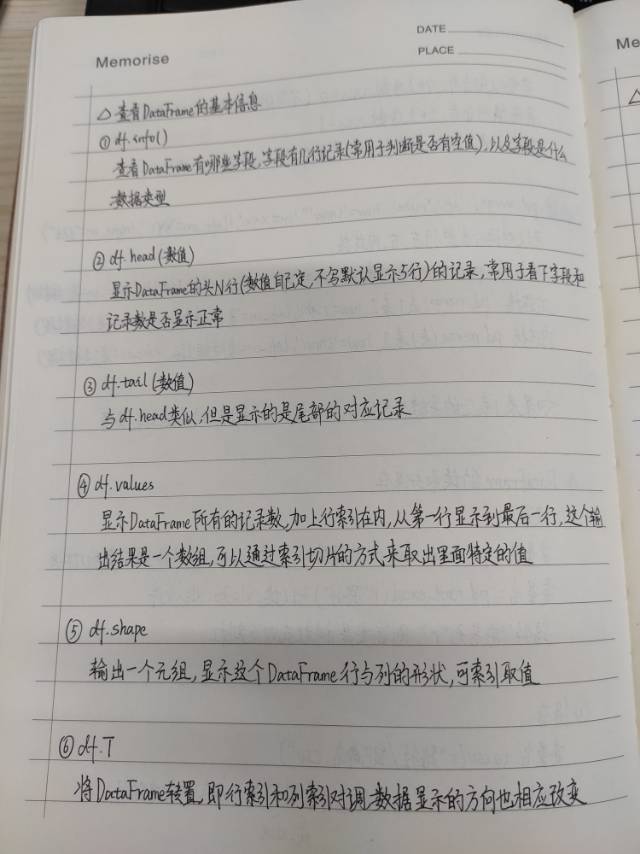 DATE
PLACE
Memorise
Me
△查看DataFrame的基本信息
① df.info()
查看DataFrame有哪些字段,字段有几行记录(常用于判断是否有空值),以及字段是什么
数据类型
② df.head(数值)
显示DataFrame的头N行(数值自己定,不写默认显示5行)的记录,常用于看下字段和
记录数是否显示正常
③ df.tail(数值)
与df.head类似,但是显示的是尾部的对应记录
④ df.values
显示DataFrame所有的记录数,加上行索引在内,从第一行显示到最后一行,这个输
出结果是一个数组,可以通过索引切片的方式来取出里面特定的值
⑤ df.shape
输出一个元组,显示这个DataFrame行与列的形状,可索引取值
⑥ df.T
将DataFrame转置,即行索引和列索引对调,数据显示的方向也相应改变